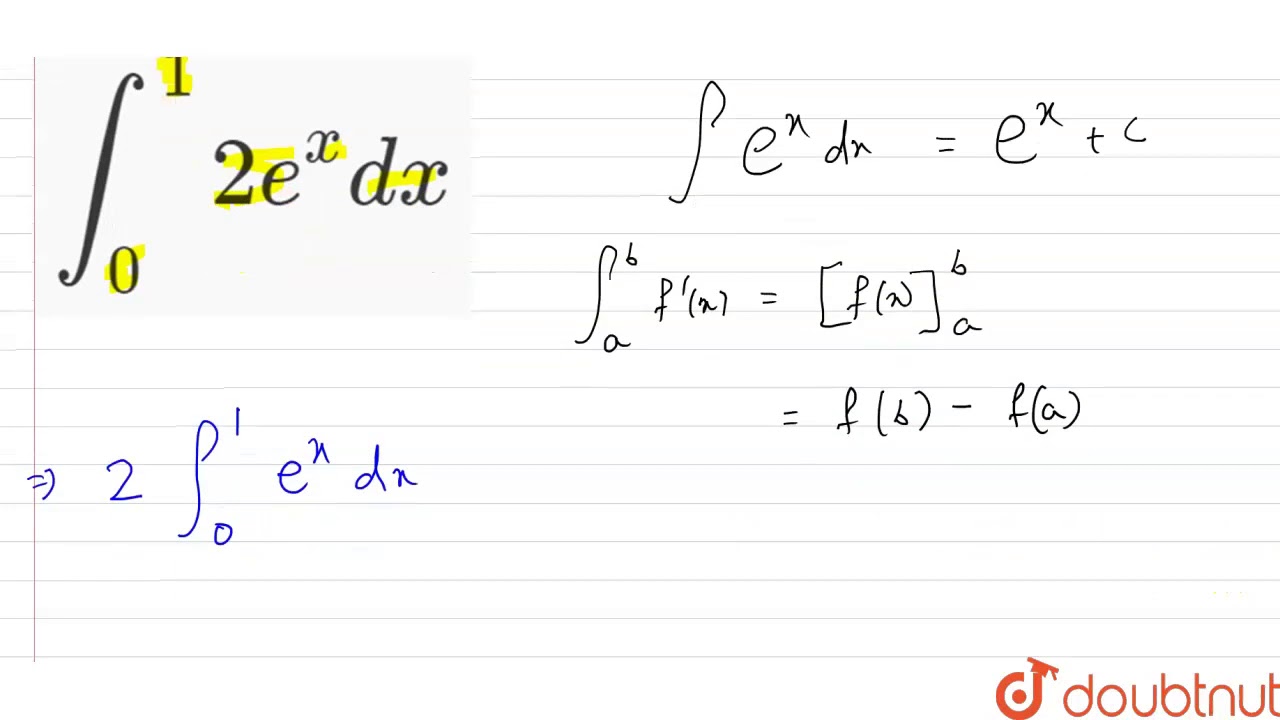 ∫₀¹ 2eˣ dx
∫ eˣ dx = eˣ + c
∫ₐᵇ f'(x) = [f(x)]ₐᵇ
= f(b) - f(a)
⇒ 2 ∫₀¹ eˣ dx
doubtnut